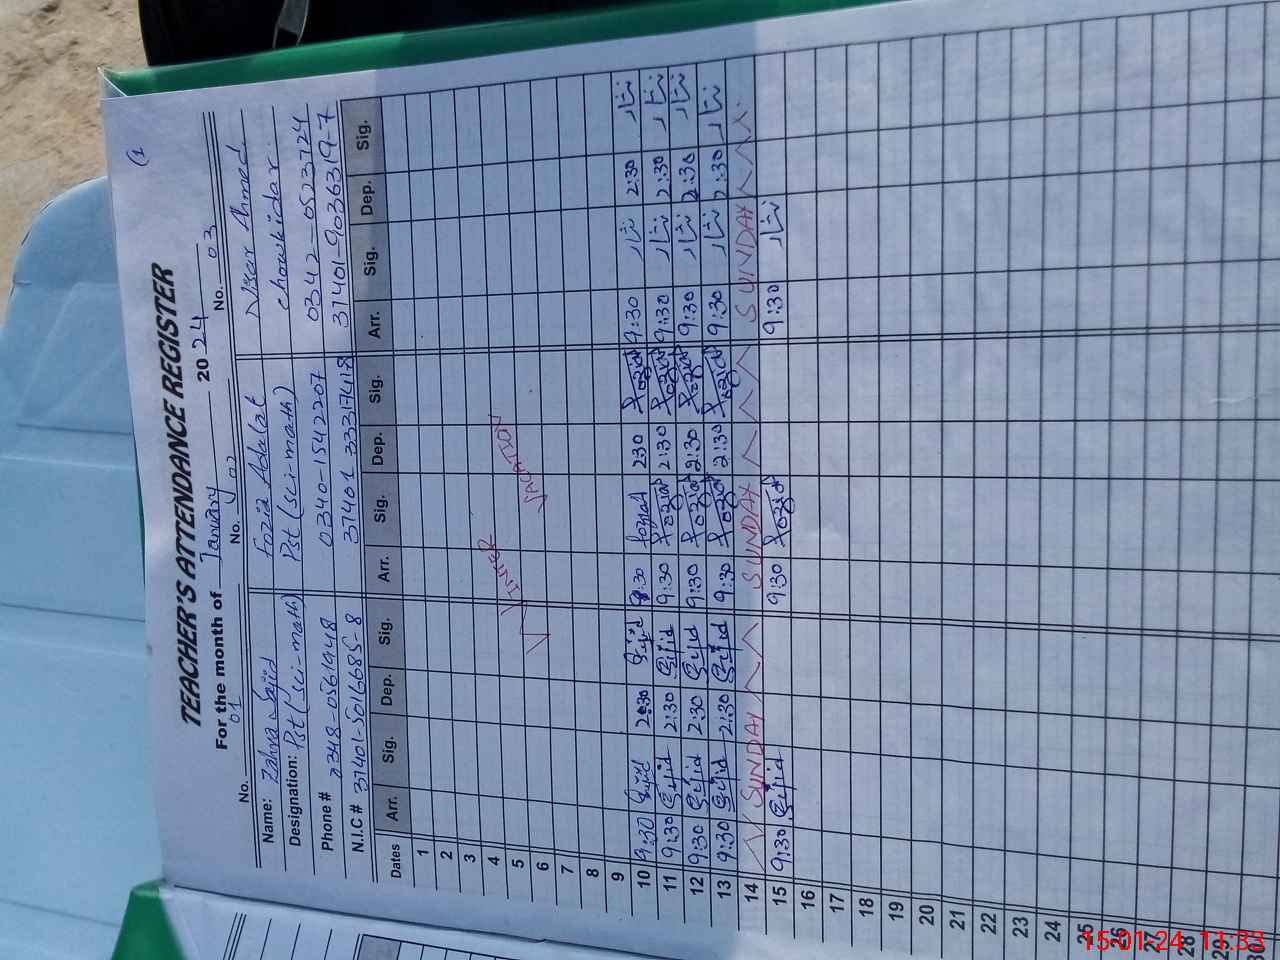 (1
TEACHER'S ATTENDANCE REGISTER
For the month of January 2024
No. 01 No. 02 No. 03
Name: Zahra Sajid Fozia Adalat Nisar Ahmed
Designation: Pst (sci-math) Pst (sci-math) chowkidar.
Phone # 0348-0561948 0340-1542207 0342-0523724
N.I.C # 37401-5016685-8 37401 33317418 37401-9036319-7
Dates Arr. Sig. Dep. Sig. Arr. Sig. Dep. Sig. Arr. Sig. Dep. Sig.
1
2
3
4
5
6
WINTER VACATION
7
8
9
10 9:30 Sajid 2:30 Sajid 8:30 fozia 230 Fozia 9:30 نثار 2:30 نثار
11 9:30 Sajid 2:30 Sajid 9:30 Fozia 2:30 Fozia 9:30 نثار 2:30 نثار
12 9:30 Sajid 2:30 Sajid 9:30 Fozia 2:30 Fozia 9:30 نثار 2:30 نثار
13 9:30 Sajid 2:30 Sajid 9:30 Fozia 2:30 Fozia 9:30 نثار 2:30 نثار
14 SUNDAY SUNDAY SUNDAY
15 9:30 Sajid 9:30 Fozia 9:30 نثار
16
17
18
19
20
21
22
23
24
25
26
27
28
29
30
15.01.24 11:33